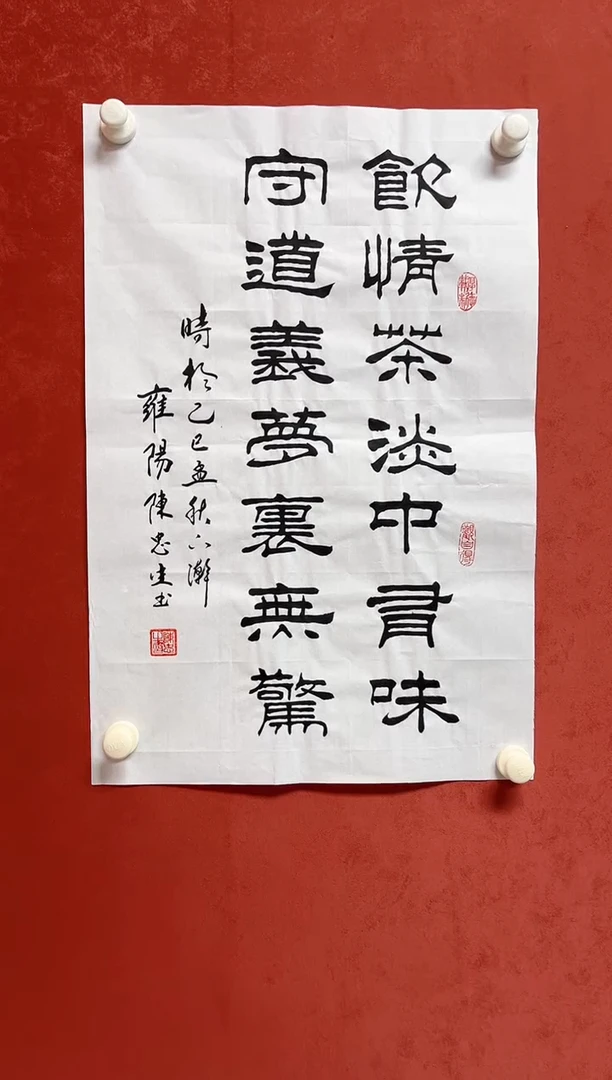 飲情茶淡中有味
守道義夢裏無驚
時於乙巳孟秋六澣
雍陽陳忠生书